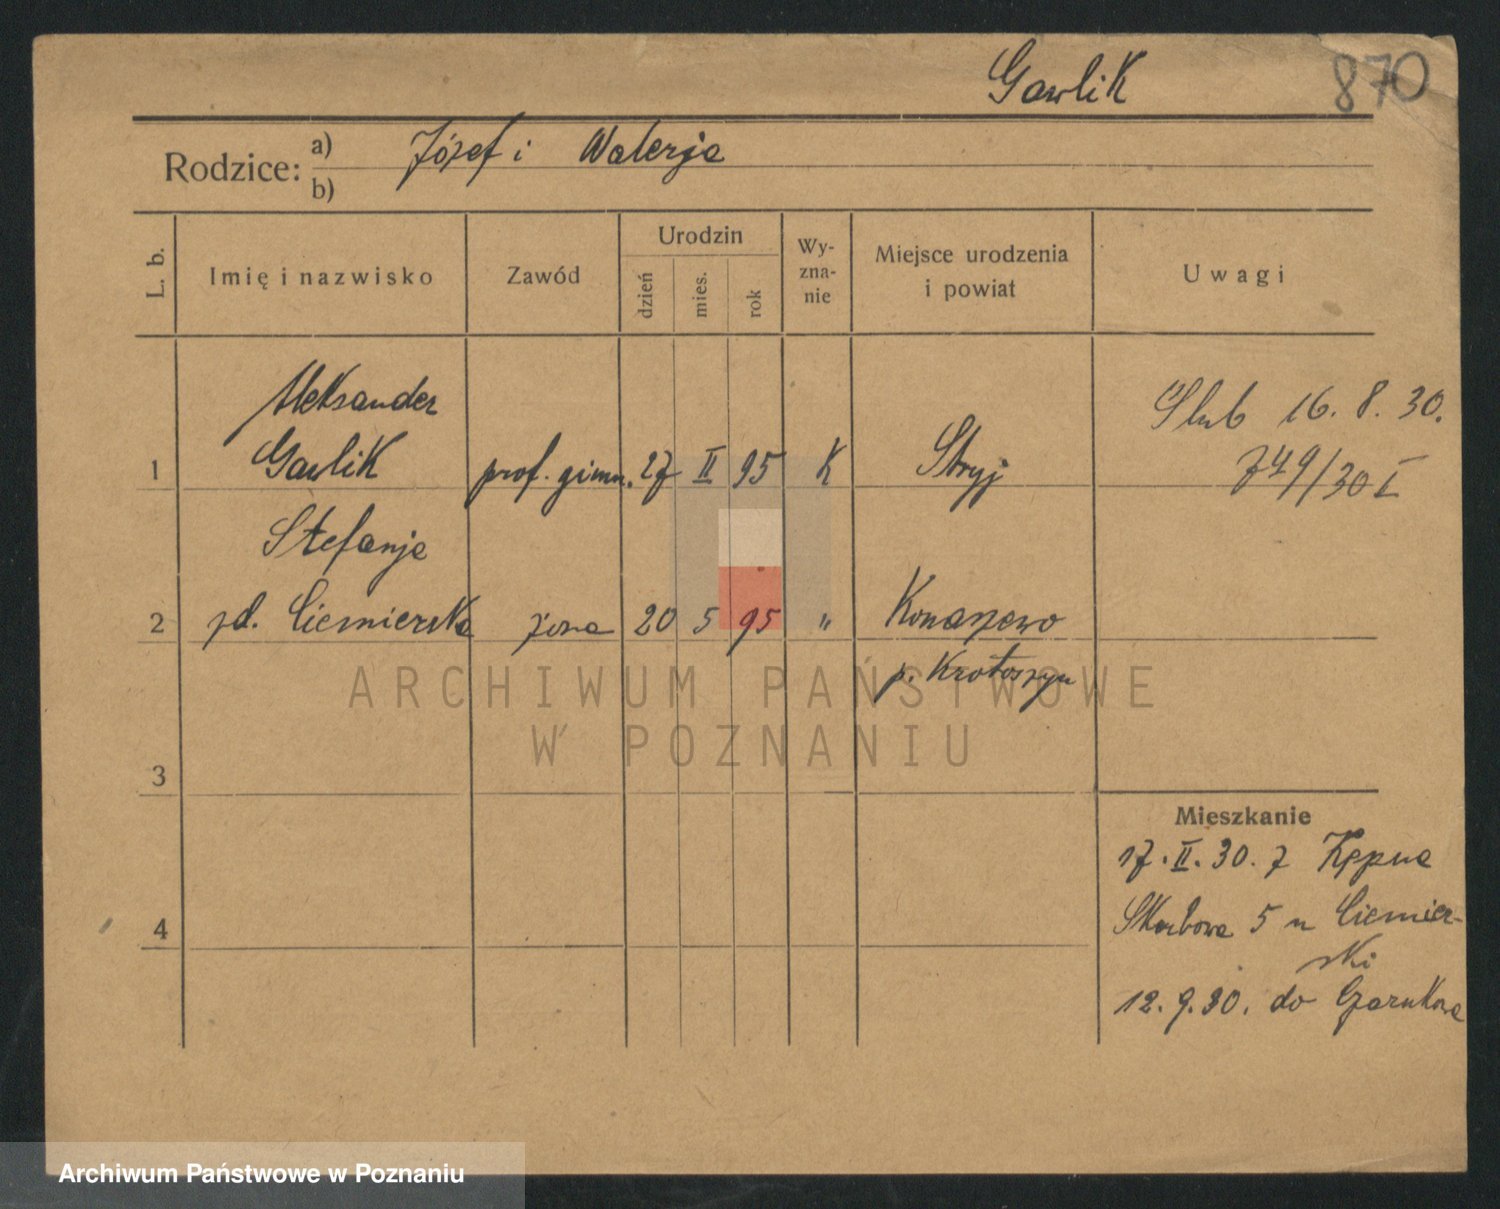 Gawlik 870
Rodzice: a) Józef i Walerja
b)
L. b. Imię i nazwisko Zawód Urodzin dzień mies. rok Wyznanie Miejsce urodzenia i powiat Uwagi
Aleksander Ślub 16. 8. 30.
1 Gawlik prof. gimn. 27 II 95 K Stryj 749/30 I
Stefanja
2 zd. Ciemierska żona 20 5 95 " Konarzewo
p. Krotoszyn
ARCHIWUM PAŃSTWOWE
W POZNANIU
3
Mieszkanie
17. II. 30. z Kępna
4 Skarbowa 5 u Ciemier-
ski
12. 9. 30. do Czarnkowa
Archiwum Państwowe w Poznaniu